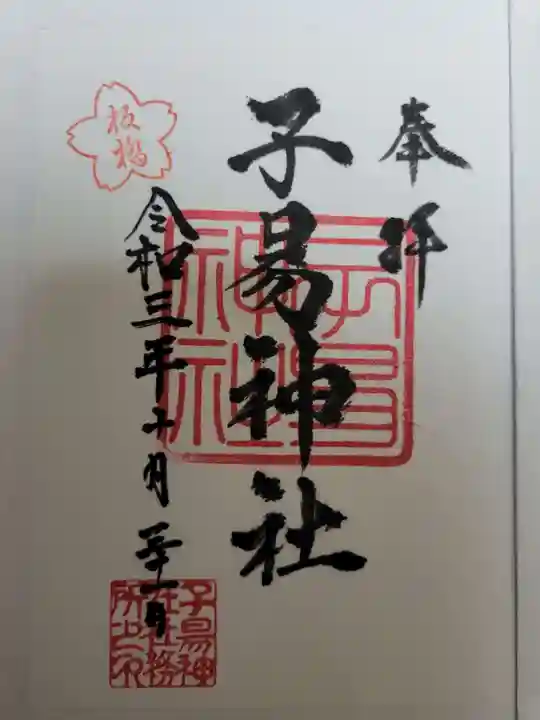 奉拝
子易神社
子易神社
板橋
令和三年十月二十一日
子易神
社社務
所之印